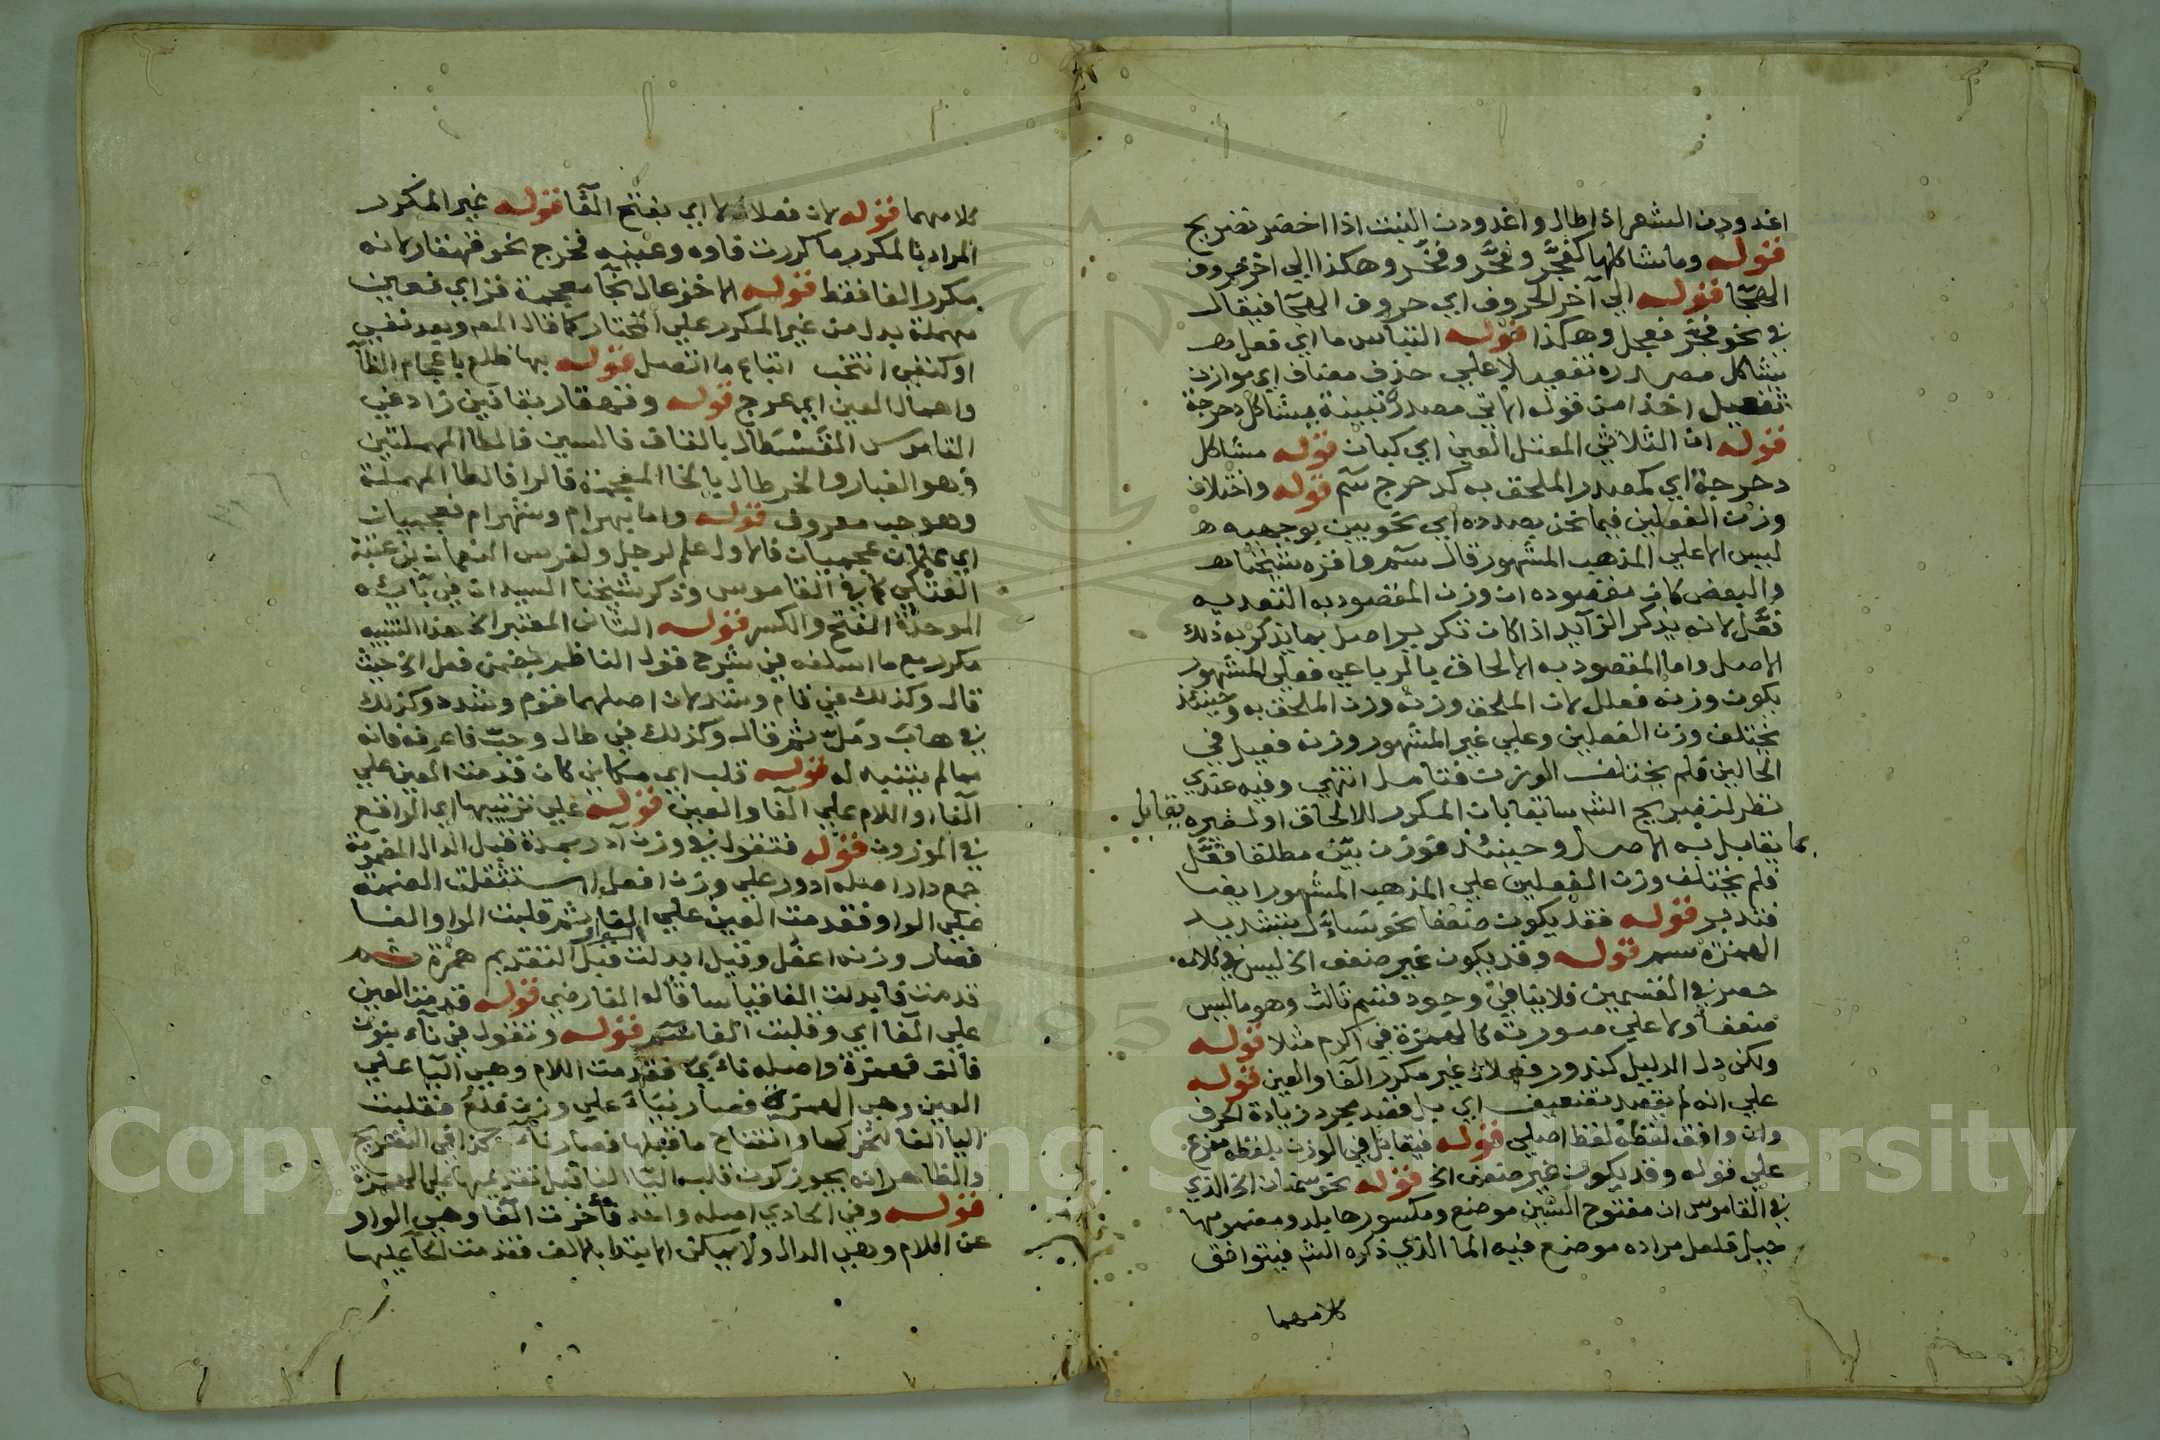 اغدودن الشعر اذا طال واغدودن النبت اذا اخضر تضريح
قوله وما شاكلها كفجَّر وفجَّر وفخَّر وهكذا الي اخر حروف
الهجآ قوله الي آخر الحروف اي حروف الهجآ فيقال
في نحو فجّر فعجل وهكذا قوله التباس ما اي فعل
يشاكل مصدره تفعيلا علي حذف مضاف اي موازن
تفعيل اخذا من قوله الاتي مصدر تبينة يشاكل دحرجة
قوله ان الثلاثي المعتل العين اي كبان قوله مشاكل
دحرجة اي كمصدر الملحق به كدحرج سم قوله واختلاف
وزن الفعلين فيما نحن بصدده اي نحو بين بوجهيه
ليس الا علي المذهب المشهور قال سم واقره شيخنا
والبعض كان مقصوده ان وزن المقصود به التعديه
فعّل لانه يذكر الزآيد اذا كان تكرير اصل بما يذكر به ذلك
الاصل واما المقصود به الالحاق بالرباعي فعلي المشهور
يكون وزنه فعلل لان الملحق وزنه وزن الملحق به وحينئذ
يختلف وزن الفعلين وعلي غير المشهور وزنه فعيل في
الحالين فلم يختلف الوزن فتامل انتهي وفيه عندي
نظر لتصريح الشم سابقا بان المكرر للالحاق او لغيره يقابل
بما يقابل به الاصل وحينئذ فوزن بيّن مطلقا فعّل
فلم يختلف وزن الفعلين علي المذهب المشهور ايضا
فتدبر قوله فقد يكون ضعفا نحو تساءل بتشديد
الهمزة سم قوله وقد يكون غير ضعف الخ ليس في كلامه
حصر في القسمين فلا ينافي وجود قسم ثالث وهو ما ليس
ضعفا ولا علي صورته كالهمزة في اكرم مثلا قوله
ولكن دل الدليل كندور فعلان غير مكرر الفآ والعين قوله
علي انه لم يقصد تضعيف اي بل قصد مجرد زيادة الحرف
وان وافق لفظه لفظ اصلي قوله فيقابل في الوزن بلفظه مفرع
علي قوله وقد يكون غير ضعف الخ قوله نحو سمنان الخ الذي
في القاموس ان مفتوح السين موضع ومكسورها بلد ومضمومها
جبل فلعل مراده موضع فيه الما الذي ذكره الشم فيتوافق
كلامهما
كلامهما قوله لان فعلانا اي بفتح الفآ قوله غير المكرر
المراد بالمكرر ما كررت فاوه وعينه فخرج نحو قهقار لانه
مكرر الفا فقط قوله الا خزعال بخآ معجمة فزاي فعين
مهملة بدل من غير المكرر علي المختار كما قال المص وبعد نفي
او كنفي انتخب اتباع ما اتصل قوله بها ظلع باعجام الظآ
واهمال العين اي عرج قوله وقهقار بقافين زاد في
القاموس القَسْطال بالقاف فالسين فالطا المهملتين
وهو الغبار والخرطال بالخا المعجمة فالرا فالطا المهملة
وهو حب معروف قوله واما بهرام وشهرام فعجميان
اي علمان عجميان فالاول علم لرجل ولفرس النعمان بن عتبة
العتكي كما في القاموس وذكر شيخنا السيد ان في بآئه
الموحدة الفتح والكسر قوله الثاني المعتبر الخ هذا التنبيه
مكرر مع ما اسلفه في شرح قول الناظم بضمن فعل الخ حيث
قال وكذلك في قام وشد لان اصلهما قوم وشدد وكذلك
في هاب ومَلّ ثم قال وكذلك في طال وحبّ فاعرفه فانه
مما لم يتنبه له قوله قلب اي مكاني كان قدمت العين علي
الفآ او اللام علي الفآ والعين قوله علي ترتيبها اي الواقع
في الموزون قوله فتقول في وزن آدر بمدة قبل الدال المضمومة
جمع دار اصله ادور علي وزن افعل استثقلت الضمة
علي الواو فقدمت العين علي الفا ثم قلبت الواو الفا
فصار وزنه اعفل وقيل ابدلت الواو قبل التقديم همزة ثم
قدمت فابدلت الفا قياسا قاله الفارضي قوله قدمت العين
علي الفآ اي وقلبت الفا سم قوله وتقول في نآء بنون
فالف فهمزة واصله نأي فقدمت اللام وهي اليآ علي
العين وهي الهمزة فصار نيأ علي وزن فلع فقلبت
اليا الفا لتحركها وانفتاح ما قبلها فصار ناء كذا في التصريح
والظاهر انه يجوز كون قلب اليآ الفا قبل تقديمها علي الهمزة
قوله وفي الحادي اصله واحد فأخرت الفآ وهي الواو
عن اللام وهي الدال ولا يمكن الابتدا بالالف فقدمت الحآ عليها
Copyright © King Saud University